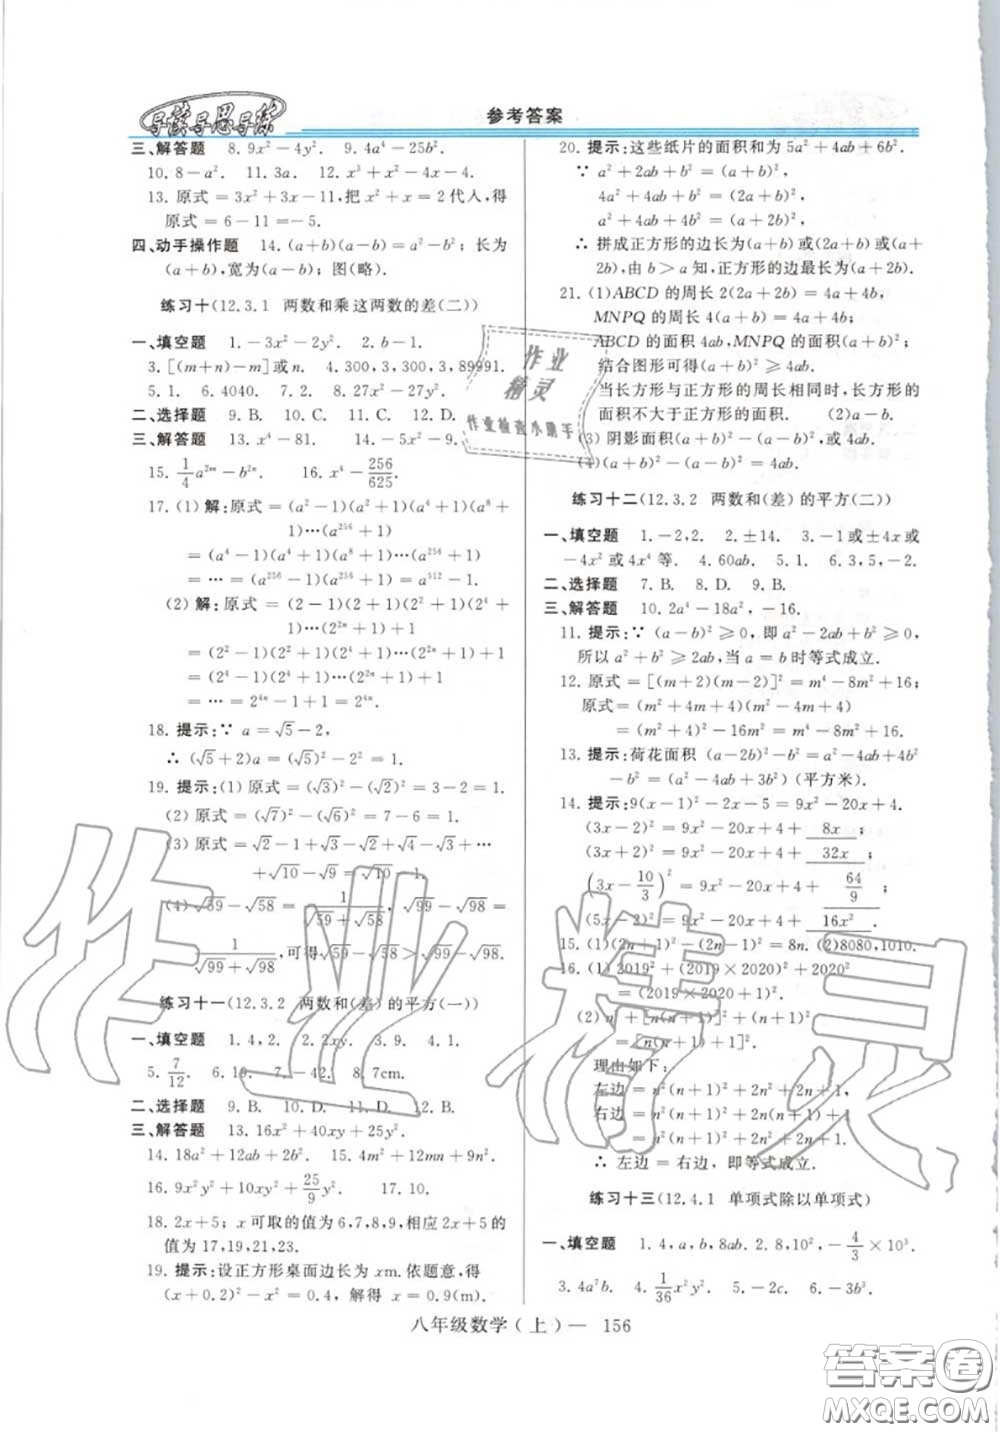 导读导思导练
参考答案
三、解答题 8. 9x²－4y². 9. 4a⁴－25b².
10. 8－a². 11. 3a. 12. x³＋x²－4x－4.
13. 原式＝3x²＋3x－11,把 x²＋x＝2代入,得
原式＝6－11＝－5.
四、动手操作题 14. (a＋b)(a－b)＝a²－b²；长为
(a＋b),宽为(a－b)；图(略).
练习十(12.3.1 两数和乘这两数的差(二))
一、填空题 1. －3x²－2y². 2. b－1.
3. [(m＋n)－m]或n. 4. 300,3,300,3,89991.
5. 1. 6. 4040. 7. 1. 8. 2.
二、选择题 9. B. 10. C. 11. C. 12. D.
三、解答题 13. x⁴－81. 14. －5x²－9.
15. 1/4 a²ᵐ－b²ⁿ. 16. x⁴－256/625.
17. (1) 解:原式＝(a²－1)(a²＋1)(a⁴＋1)(a⁸＋
1)…(a²⁵⁶＋1)
＝(a⁴－1)(a⁴＋1)(a⁸＋1)…(a²⁵⁶＋1)
＝…＝(a²⁵⁶－1)(a²⁵⁶＋1)＝a⁵¹²－1.
(2) 解:原式＝(2－1)(2＋1)(2²＋1)(2⁴＋
1)…(2²ⁿ＋1)＋1
＝(2²－1)(2²＋1)(2⁴＋1)…(2²ⁿ＋1)＋1
＝(2⁴－1)(2⁴＋1)…(2²ⁿ＋1)＋1
＝…＝2⁴ⁿ－1＋1＝2⁴ⁿ.
18. 提示:∵ a＝√5－2,
∴ (√5＋2)a＝(√5)²－2²＝1.
19. 提示:(1) 原式＝(√3)²－(√2)²＝3－2＝1.
(2) 原式＝(√7)²－(√6)²＝7－6＝1.
(3) 原式＝√2－1＋√3－√2＋√4－√3＋…
＋√10－√9＝√10－1.
(4) √59－√58＝1/(√59＋√58), √99－√98＝
1/(√99＋√98),可得√59－√58＞√99－√98.
练习十一(12.3.2 两数和(差)的平方(一))
一、填空题 1. 4,2. 2. 2xy. 3. 9. 4. 1.
5. 7/12. 6. 19. 7. －42. 8. 7cm.
二、选择题 9. B. 10. D. 11. D. 12. B.
三、解答题 13. 16x²＋40xy＋25y².
14. 18a²＋12ab＋2b². 15. 4m²＋9n².
16. 9x²y²＋10xy²＋25/9 y². 17. 10.
18. 2x＋5；x 可取的值为 6,7,8,9,相应 2x＋5 的
值为 17,19,21,23.
19. 提示:设正方形桌面边长为 xm.依题意,得
(x＋0.2)²－x²＝0.4, 解得 x＝0.9(m).
20. 提示:这些纸片的面积和为 5a²＋4ab＋6b².
∵ a²＋2ab＋b²＝(a＋b)²,
4a²＋4ab＋b²＝(2a＋b)²,
a²＋4ab＋4b²＝(a＋2b)²,
∴ 拼成正方形的边长为(a＋b)或(2a＋b)或(a＋
2b),由 b＞a 知,正方形的边最长为(a＋2b).
21. (1)ABCD 的周长 2(2a＋2b)＝4a＋4b,
MNPQ 的周长 4(a＋b)＝4a＋4b；
ABCD 的面积 4ab,MNPQ 的面积(a＋b)²,
结合图形可得(a＋b)²≥4ab.
当长方形与正方形的周长相同时,长方形的
面积不大于正方形的面积. (2)a－b.
(3) 阴影面积(a－b)²,或 4ab.
(4)(a＋b)²－(a－b)²＝4ab.
练习十二(12.3.2 两数和(差)的平方(二))
一、填空题 1. －2,2. 2. ±14. 3. －1或±4x或
－4x²或 4x⁴ 等. 4. 60ab. 5. 1. 6. 3,5,－2.
二、选择题 7. B. 8. D. 9. B.
三、解答题 10. 2a⁴－18a²,－16.
11. 提示:∵ (a－b)²≥0, 即 a²－2ab＋b²≥0,
所以 a²＋b²≥2ab,当 a＝b 时等式成立.
12. 原式＝[(m＋2)(m－2)]²＝m⁴－8m²＋16；
原式＝(m²＋4m＋4)(m²－4m＋4)
＝(m²＋4)²－16m²＝m⁴－8m²＋16.
13. 提示:荷花面积 (a－2b)²－b²＝a²－4ab＋4b²
－b²＝(a²－4ab＋3b²)(平方米).
14. 提示:9(x－1)²－2x－5＝9x²－20x＋4.
(3x－2)²＝9x²－20x＋4＋ 8x ;
(3x＋2)²＝9x²－20x＋4＋ 32x ;
(3x－10/3)²＝9x²－20x＋4＋ 64/9 ;
(5x－2)²＝9x²－20x＋4＋ 16x² .
15. (1)(2n＋1)²－(2n－1)²＝8n. (2)8080,1010.
16. (1) 2019²＋(2019×2020)²＋2020²
＝(2019×2020＋1)².
(2) n²＋[n(n＋1)]²＋(n＋1)²
＝[n(n＋1)＋1]².
理由如下:
左边＝n²(n＋1)²＋2n²＋2n＋1,
右边＝n²(n＋1)²＋2n²＋2n＋1,
∴ 左边＝右边, 即等式成立.
练习十三(12.4.1 单项式除以单项式)
一、填空题 1. 4,a,b,8ab. 2. 8,10²,－4/3×10³.
3. 4a²b. 4. 1/36 x²y². 5. －2c. 6. －3b³.
八年级数学(上)— 156
作业精灵
作业精灵
作业检查小助手
答案圈
MXQE.COM